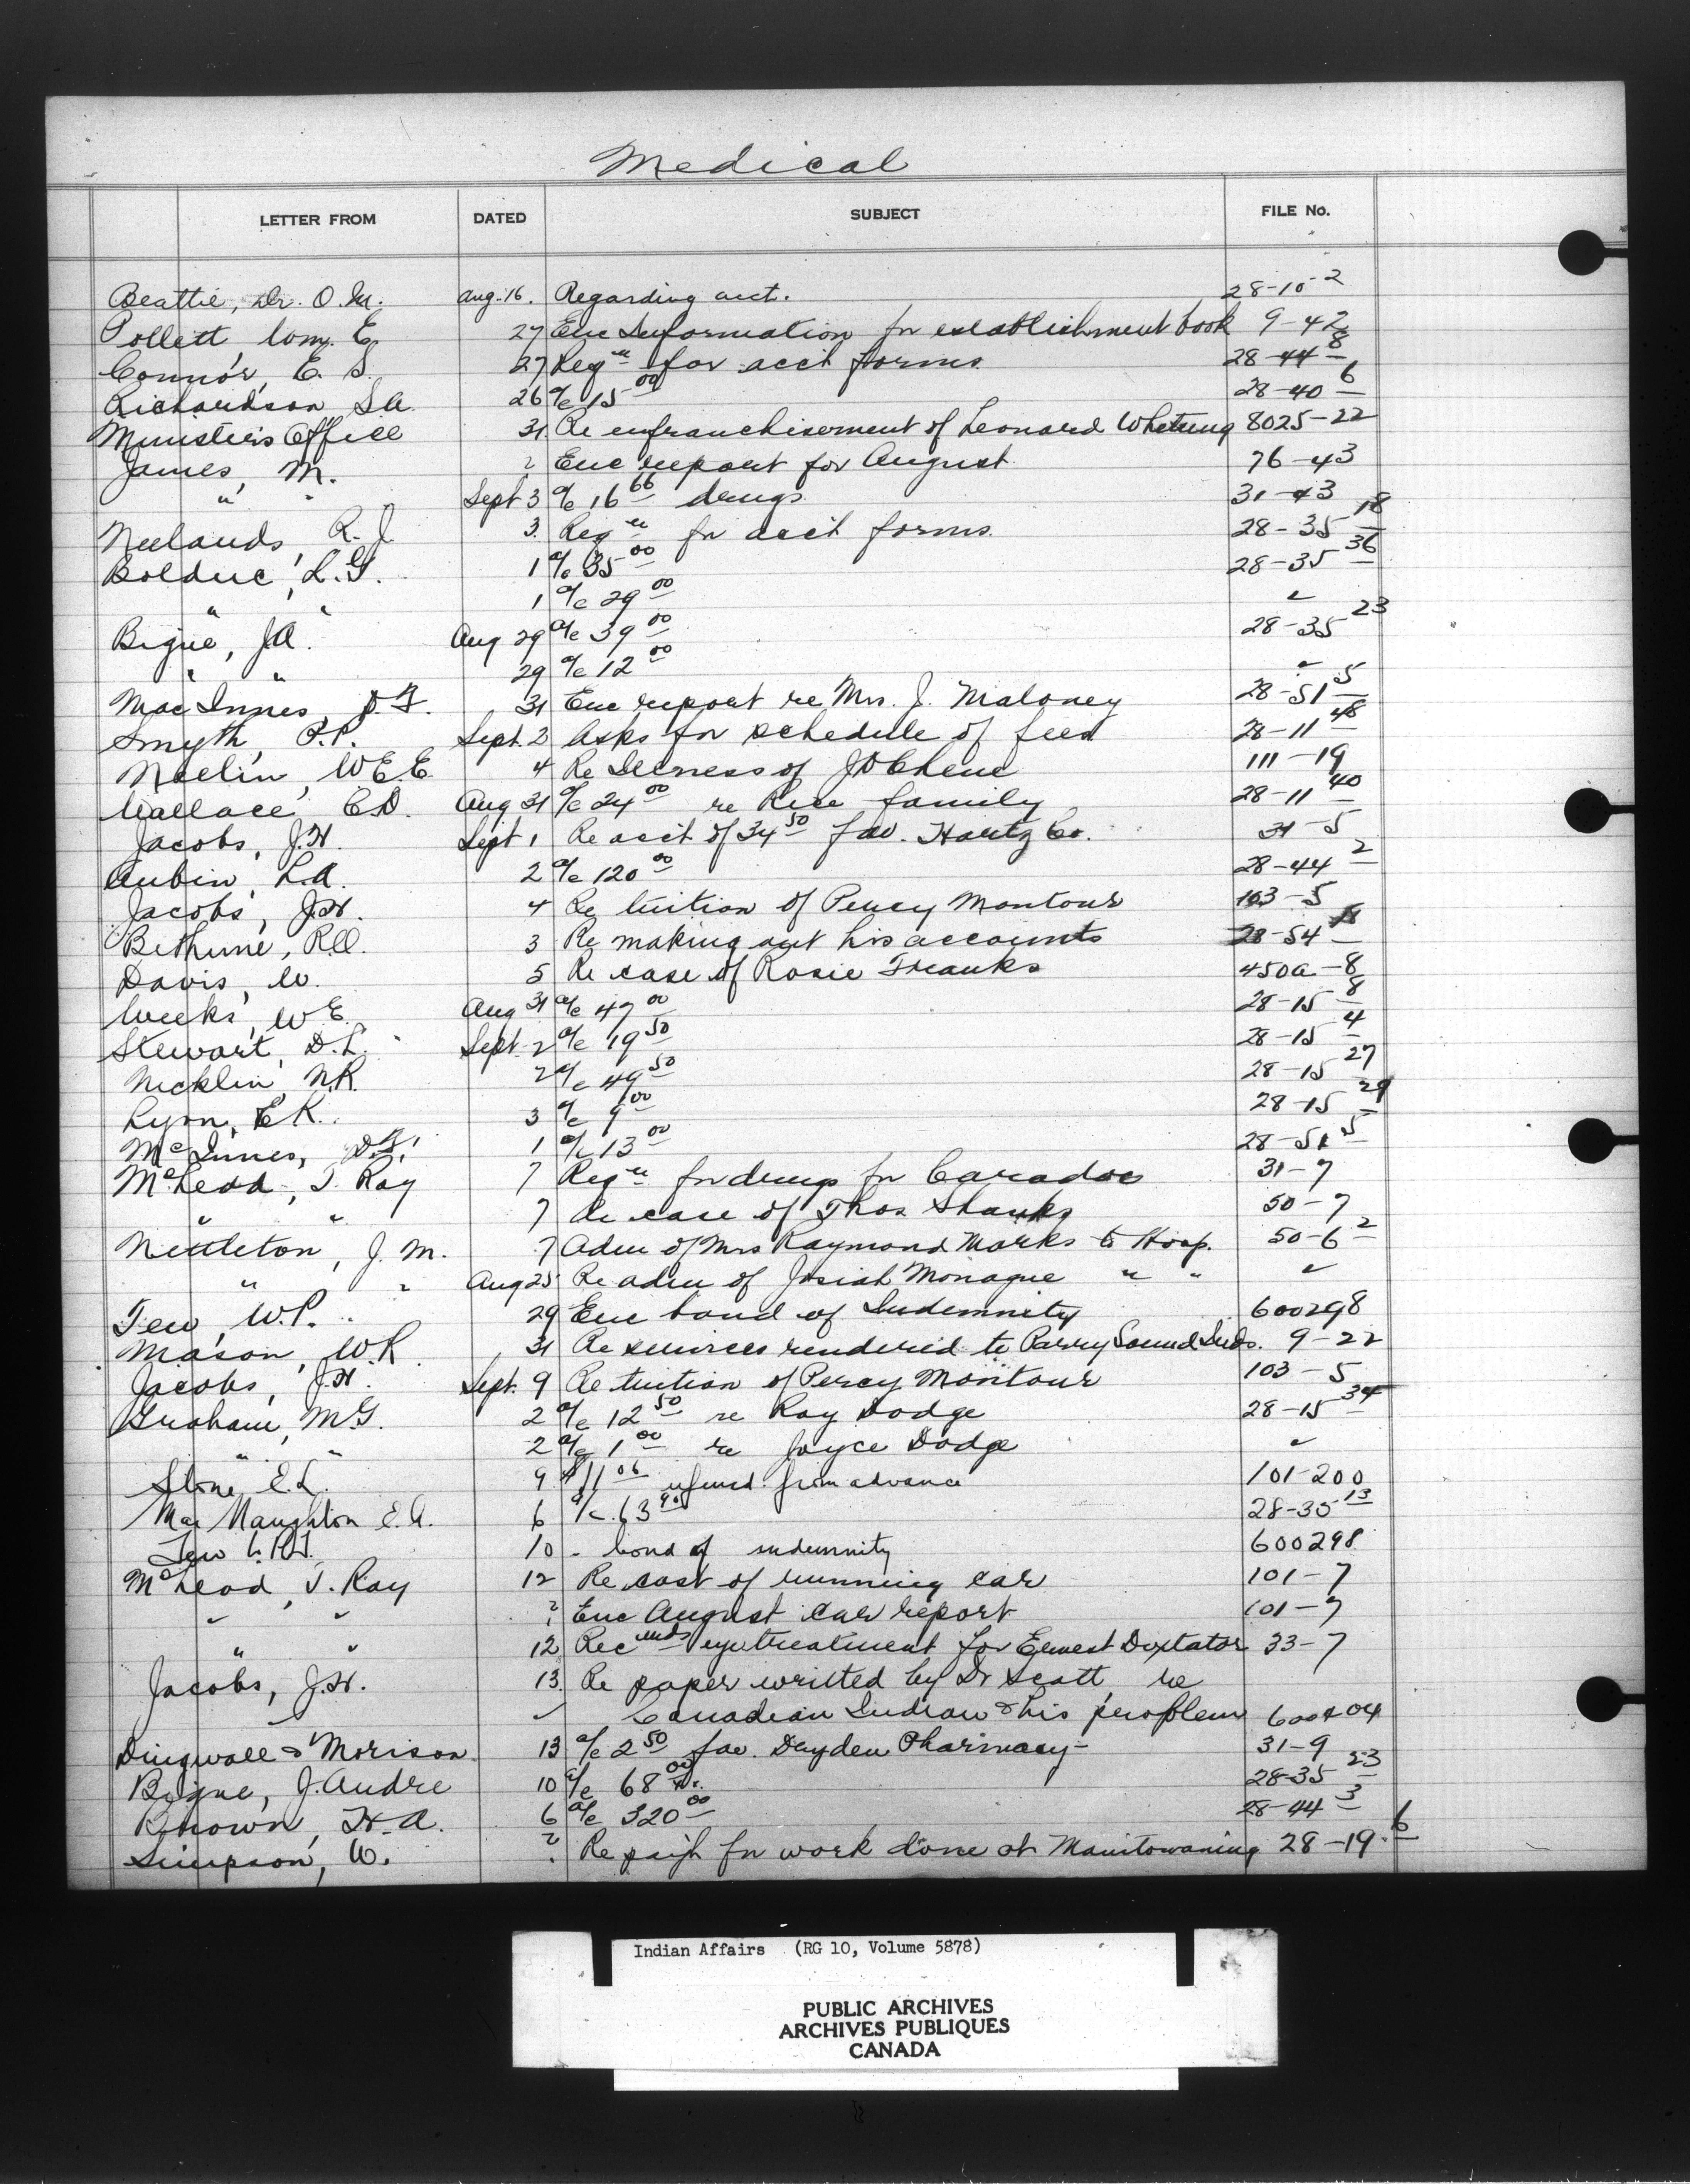 Medical
LETTER FROM DATED SUBJECT FILE No.
Beattie, Dr. O.M. Aug. 16. Regarding acct. 28-10-2
Pollett, Wm. E. 27 Enc Information for establishment book 9-42
Connor, E. S. 27 Reqn for acct forms 28-44 8
Richardson, S.A. 26 a/c 15 00 28-40 6
Minister's Office 31 Re enfranchisement of Leonard Whetung 8025-22
James, M. ? Enc report for August 76-43
" " Sept 3 a/c 16 66 drugs 31-43
Neelands, R. J. 3 Reqn for acct forms. 28-35 18
Bolduc, L.G. 1 a/c 35 00 28-35 36
" " 1 a/c 29 00 "
Bigué, J.A. Aug 29 a/c 39 00 28-35 23
" " 29 a/c 12 00 "
MacInnes, D.F. 31 Enc report re Mrs. J. Maloney 28-51 5
Smyth, P.P. Sept. 2 Asks for schedule of fees 28-11 48
Neelin, W.E.E. 4 Re Illness of J D Chene 111-19
Wallace, C.D. Aug 31 a/c 24 00 re Rice family 28-11 40
Jacobs, J.H. Sept 1 Re acct of 34 50 fav. Hartz Co. 31-5
Aubin, L.A. 2 a/c 120 00 28-44 2
Jacobs, J.H. 4 Re tuition of Percy Montour 103-5
Bethune, R.O. 3 Re making out his accounts 28-54
Davis, W. 5 Re case of Rosie Franks 450a-8
Weeks, W.E. Aug 31 a/c 47 00 28-15 8
Stewart, D.L. Sept. 2 a/c 19 50 28-15 4
Nicklin, N.R. 2 a/c 49 50 28-15 27
Lyon, E.K. 3 a/c 9 00 28-15 29
McInnes, D.F. 1 a/c 13 00 28-51 5
McLeod, T. Ray 7 Reqn for drugs for Caradoc 31-7
" " 7 Re case of Thos Shanks 50-7
Nettleton, J. M. 7 Adm of Mrs Raymond Marks to Hosp. 50-6 2
" " Aug 25 Re adm of Josiah Monague " " "
Tew, W.P. 29 Enc bond of Indemnity 600298
Mason, W.R. 31 Re services rendered to Parry Sound Inds. 9-22
Jacobs, J.H. Sept. 9 Re tuition of Percy Montour 103-5
Graham, M.G. 2 a/c 12 50 re Ray Dodge 28-15 34
" " 2 a/c 1 00 re Joyce Dodge "
Stone, E.L. 9 $11 06 refund from advance 101-200
MacNaughton E.A. 6 a/c 63 90 28-35 13
Tew 10 - bond of indemnity 600298
McLeod, T. Ray 12 Re cost of running car 101-7
" " ? Enc August car report 101-7
" " 12 Recmds eye treatment for Ernest Doxtator 33-7
Jacobs, J.H. 13. Re paper writted by Dr Scott, re
Canadian Indian & his problem 600404
Dingwall & Morison 13 a/c 2 50 fav. Dayden Pharmacy 31-9
Bigue, J. Andre 10 a/c 68 00 28-35 23
Brown, H.A. 6 a/c 320 00 28-44 3
Simpson, W. ? Re paym for work done at Manitowaning 28-19 6
Indian Affairs (RG 10, Volume 5878)
PUBLIC ARCHIVES
ARCHIVES PUBLIQUES
CANADA